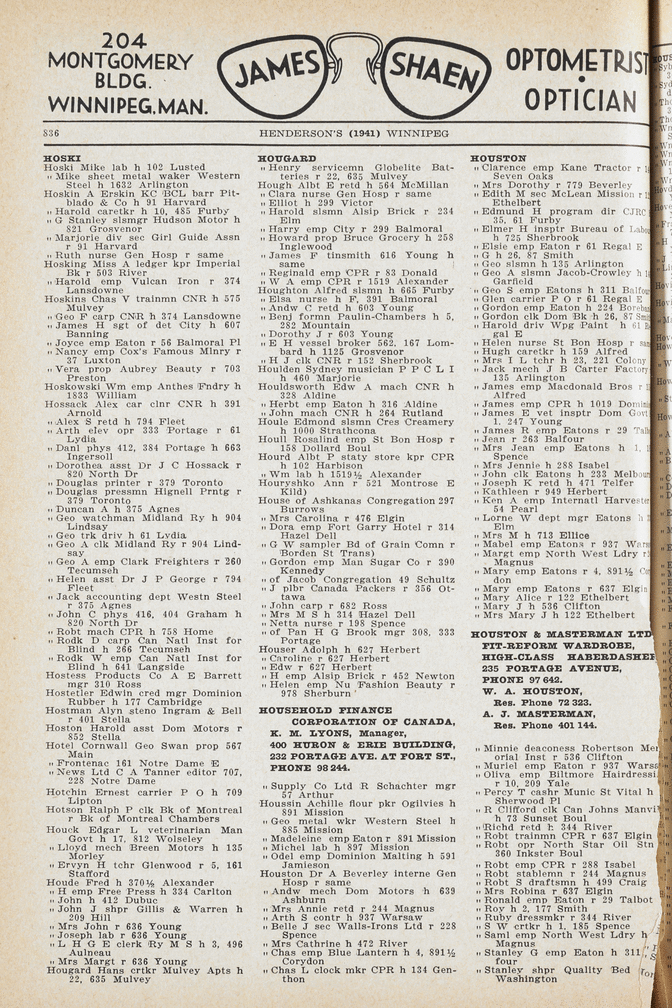 204
MONTGOMERY
BLDG.
WINNIPEG, MAN.
JAMES SHAEN
OPTOMETRIST
•
OPTICIAN
836
HENDERSON'S (1941) WINNIPEG
HOSKI
Hoski Mike lab h 102 Lusted
„ Mike sheet metal waker Western
Steel h 1632 Arlington
Hoskin A Erskin KC BCL barr Pit-
blado & Co h 91 Harvard
„ Harold caretkr h 10, 485 Furby
„ G Stanley slsmgr Hudson Motor h
821 Grosvenor
„ Marjorie div sec Girl Guide Assn
r 91 Harvard
„ Ruth nurse Gen Hosp r same
Hosking Miss A ledger kpr Imperial
Bk r 503 River
„ Harold emp Vulcan Iron r 374
Lansdowne
Hoskins Chas V trainmn CNR h 575
Mulvey
„ Geo F carp CNR h 374 Lansdowne
„ James H sgt of det City h 607
Banning
„ Joyce emp Eaton r 56 Balmoral Pl
„ Nancy emp Cox's Famous Mlnry r
37 Luxton
„ Vera prop Aubrey Beauty r 703
Preston
Hoskowski Wm emp Anthes Fndry h
1833 William
Hossack Alex car clnr CNR h 391
Arnold
„ Alex S retd h 794 Fleet
„ Arth elev opr 333 Portage r 61
Lydia
„ Danl phys 412, 384 Portage h 663
Ingersoll
„ Dorothea asst Dr J C Hossack r
820 North Dr
„ Douglas printer r 379 Toronto
„ Douglas pressmn Hignell Prntg r
379 Toronto
„ Duncan A h 375 Agnes
„ Geo watchman Midland Ry h 904
Lindsay
„ Geo trk driv h 61 Lydia
„ Geo A clk Midland Ry r 904 Lind-
say
„ Geo A emp Clark Freighters r 260
Tecumseh
„ Helen asst Dr J P George r 794
Fleet
„ Jack accounting dept Westn Steel
r 375 Agnes
„ John C phys 416, 404 Graham h
820 North Dr
„ Robt mach CPR h 758 Home
„ Rodk D carp Can Natl Inst for
Blind h 266 Tecumseh
„ Rodk W emp Can Natl Inst for
Blind h 641 Langside
Hostess Products Co A E Barrett
mgr 310 Ross
Hostetler Edwin cred mgr Dominion
Rubber h 177 Cambridge
Hostman Alyn steno Ingram & Bell
r 401 Stella
Hoston Harold asst Dom Motors r
852 Stella
Hotel Cornwall Geo Swan prop 567
Main
„ Frontenac 161 Notre Dame E
„ News Ltd C A Tanner editor 707,
228 Notre Dame
Hotchin Ernest carrier P O h 709
Lipton
Hotson Ralph P clk Bk of Montreal
r Bk of Montreal Chambers
Houck Edgar L veterinarian Man
Govt h 17, 812 Wolseley
„ Lloyd mech Breen Motors h 135
Morley
„ Ervyn H tchr Glenwood r 5, 161
Stafford
Houde Fred h 370½ Alexander
„ H emp Free Press h 334 Carlton
„ John h 412 Dubuc
„ John J shpr Gillis & Warren h
209 Hill
„ Mrs John r 636 Young
„ Joseph lab r 636 Young
„ L H G E clerk Ry M S h 3, 496
Aulneau
„ Mrs Margt r 636 Young
Hougard Hans crtkr Mulvey Apts h
22, 635 Mulvey
HOUGARD
„ Henry servicemn Globelite Bat-
teries r 22, 635 Mulvey
Hough Albt E retd h 564 McMillan
„ Clara nurse Gen Hosp r same
„ Elliot h 299 Victor
„ Harold slsmn Alsip Brick r 234
Elm
„ Harry emp City r 299 Balmoral
„ Howard prop Bruce Grocery h 258
Inglewood
„ James F tinsmith 616 Young h
same
„ Reginald emp CPR r 83 Donald
„ W A emp CPR r 1519 Alexander
Houghton Alfred shoemkr h 665 Furby
„ Elsa nurse h F, 391 Balmoral
„ Andw C retd h 603 Young
„ Benj formn Paulin-Chambers h 5,
282 Mountain
„ Dorothy J r 603 Young
„ E H vessel broker 562, 167 Lom-
bard h 1125 Grosvenor
„ H J clk CNR r 152 Sherbrook
Houlden Sydney musician P P C L I
h 460 Marjorie
Houldsworth Edw A mach CNR h
328 Aldine
„ Herbt emp Eaton h 316 Aldine
„ John mach CNR h 264 Rutland
Houle Edmond slsmn Cres Creamery
h 1000 Strathcona
Houll Rosalind emp St Bon Hosp r
158 Dollard Boul
Hourd Albt P staty store kpr CPR
h 102 Harbison
„ Wm lab h 1519½ Alexander
Houryshko Ann r 521 Montrose E
Kild)
House of Ashkanas Congregation 297
Burrows
„ Mrs Carolina r 476 Elgin
„ Dora emp Fort Garry Hotel r 314
Hazel Dell
„ G W sampler Bd of Grain Comn r
(Borden St Trans)
„ Gordon emp Man Sugar Co r 390
Kennedy
„ of Jacob Congregation 49 Schultz
„ J plbr Canada Packers r 356 Ot-
tawa
„ John carp r 682 Ross
„ Mrs M S h 314 Hazel Dell
„ Netta nurse r 198 Spence
„ of Pan H G Brook mgr 308, 333
Portage
Houser Adolph h 627 Herbert
„ Caroline r 627 Herbert
„ Edw r 627 Herbert
„ H emp Alsip Brick r 452 Newton
„ Helen emp Nu Fashion Beauty r
978 Sherburn
HOUSEHOLD FINANCE
CORPORATION OF CANADA,
K. M. LYONS, Manager,
400 HURON & ERIE BUILDING,
232 PORTAGE AVE. AT FORT ST.,
PHONE 98 244.
„ Supply Co Ltd R Schachter mgr
57 Arthur
Houssin Achille flour pkr Ogilvies h
891 Mission
„ Geo metal wkr Western Steel h
885 Mission
„ Madeleine emp Eaton r 891 Mission
„ Michel lab h 897 Mission
„ Odel emp Dominion Malting h 591
Jamieson
Houston Dr A Beverley interne Gen
Hosp r same
„ Andw mech Dom Motors h 639
Ashburn
„ Mrs Annie retd r 244 Magnus
„ Arth S contr h 937 Warsaw
„ Belle J sec Walls-Irons Ltd r 228
Spence
„ Mrs Cathrine h 472 River
„ Chas emp Blue Lantern h 4, 891½
Corydon
„ Chas L clock mkr CPR h 134 Gen-
thon
HOUSTON
„ Clarence emp Kane Tractor r
Seven Oaks
„ Mrs Dorothy r 779 Beverley
„ Edith M sec McLean Mission r
Ethelbert
„ Edmund H program dir CJRC
35, 61 Furby
„ Elmer H inspr Bureau of Labo
h 725 Sherbrook
„ Elsie emp Eaton r 61 Regal E
„ G h 26, 87 Smith
„ Geo slsmn h 135 Arlington
„ Geo A slsmn Jacob-Crowley h
Garfield
„ Geo S emp Eatons h 311 Balfour
„ Glen carrier P O r 61 Regal E
„ Gordon emp Eaton h 224
„ Gordon clk Dom Bk h 26, 87
„ Harold driv Wpg Paint h 61
gal E
„ Helen nurse St Bon Hosp r
„ Hugh caretkr h 159 Alfred
„ Mrs I L tchr h 23, 221 Colony
„ Jack mech J B Carter Factory
135 Arlington
„ James emp Macdonald Bros r
Alfred
„ James emp CPR h 1019
„ James E vet inspr Dom Govt
1, 247 Young
„ James R emp Eatons r 29
„ Jean r 263 Balfour
„ Mrs Jean emp Eatons h
Spence
„ Mrs Jennie h 288 Isabel
„ John clk Eatons h 233
„ Joseph K retd h 471 Telfer
„ Kathleen r 949 Herbert
„ Ken A emp Internatl
54 Pearl
„ Lorne W dept mgr Eatons h
Elm
„ Mrs M h 713 Ellice
„ Mabel emp Eatons r 937
„ Margt emp North West Ldry
Magnus
„ Mary emp Eatons r 4, 891½
don
„ Mary emp Eatons r 637 Elgin
„ Mary Alice r 122 Ethelbert
„ Mary J h 536 Clifton
„ Mrs Mary J h 122 Ethelbert
HOUSTON & MASTERMAN LTD
FIT-REFORM WARDROBE,
HIGH-CLASS
235 PORTAGE AVENUE,
PHONE 97 642.
W. A. HOUSTON,
Res. Phone 72 323.
A. J. MASTERMAN,
Res. Phone 401 144.
„ Minnie deaconess Robertson Mem
orial Inst r 536 Clifton
„ Muriel emp Eaton r 937
„ Oliva emp Biltmore
r 10, 209 Yale
„ Percy T cashr Munic St Vital h
Sherwood Pl
„ R Clifford clk Can Johns
h 73 Sunset Boul
„ Richd retd h 344 River
„ Robt trainmn CPR r 637 Elgin
„ Robt opr North Star Oil Stn
360 Inkster Boul
„ Robt emp CPR r 288 Isabel
„ Robt stablemn r 244 Magnus
„ Robt S draftsmn h 499 Craig
„ Mrs Robina r 637 Elgin
„ Ronald emp Eaton r 29 Talbot
„ Roy h 2, 177 Smith
„ Ruby dressmkr r 344 River
„ S W crtkr h 1, 185 Spence
„ Saml emp North West Ldry h
Magnus
„ Stanley G emp Eaton h 311
four
„ Stanley shpr Quality Bed
Washington